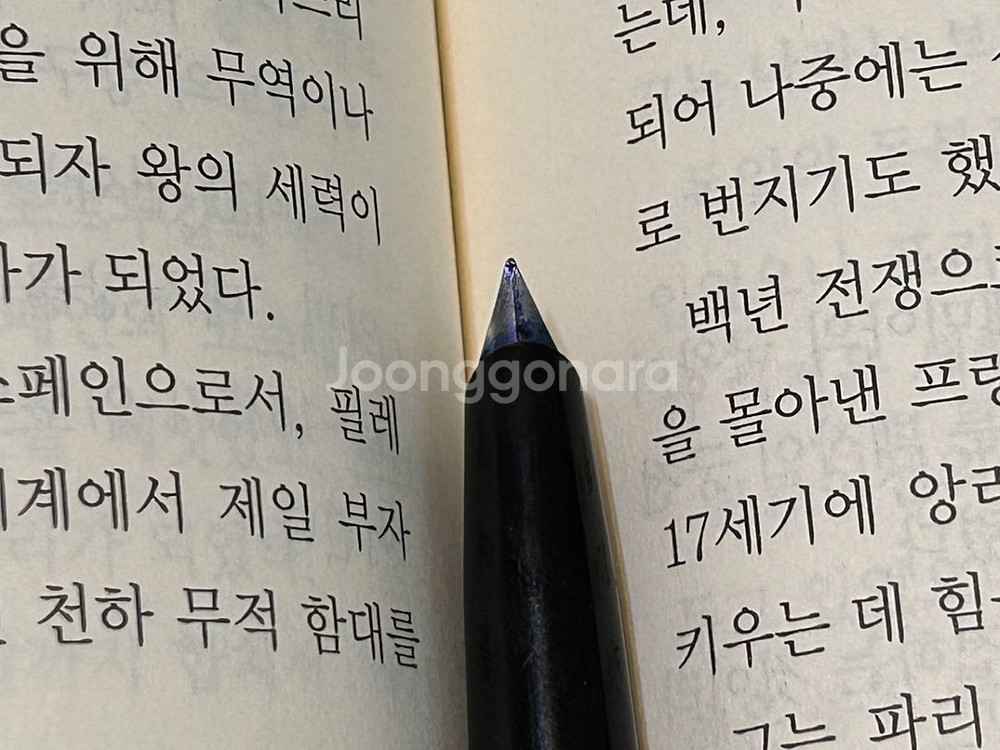 을 위해 무역이나
되자 왕의 세력이
가 되었다.
페인으로서, 필레
계에서 제일 부자
천하 무적 함대를
는데,
되어 나중에는
로 번지기도 했
백년 전쟁으
을 몰아낸 프랑
17세기에 앙리
키우는 데 힘
그는 파리
Joonggonara